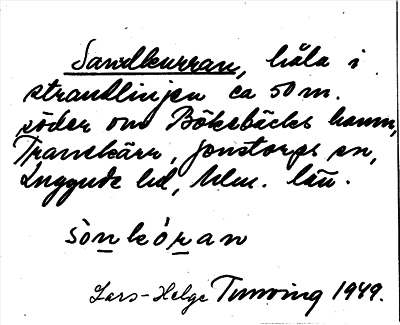 Sandkurran, håla i
strandlinjen ca 50 m.
söder om Böksbäcks hamn,
Tranekärr, Jonstorps sn,
Luggude hd, Mlm. län.
sònkóran
Lars-Helge Tunving 1949.